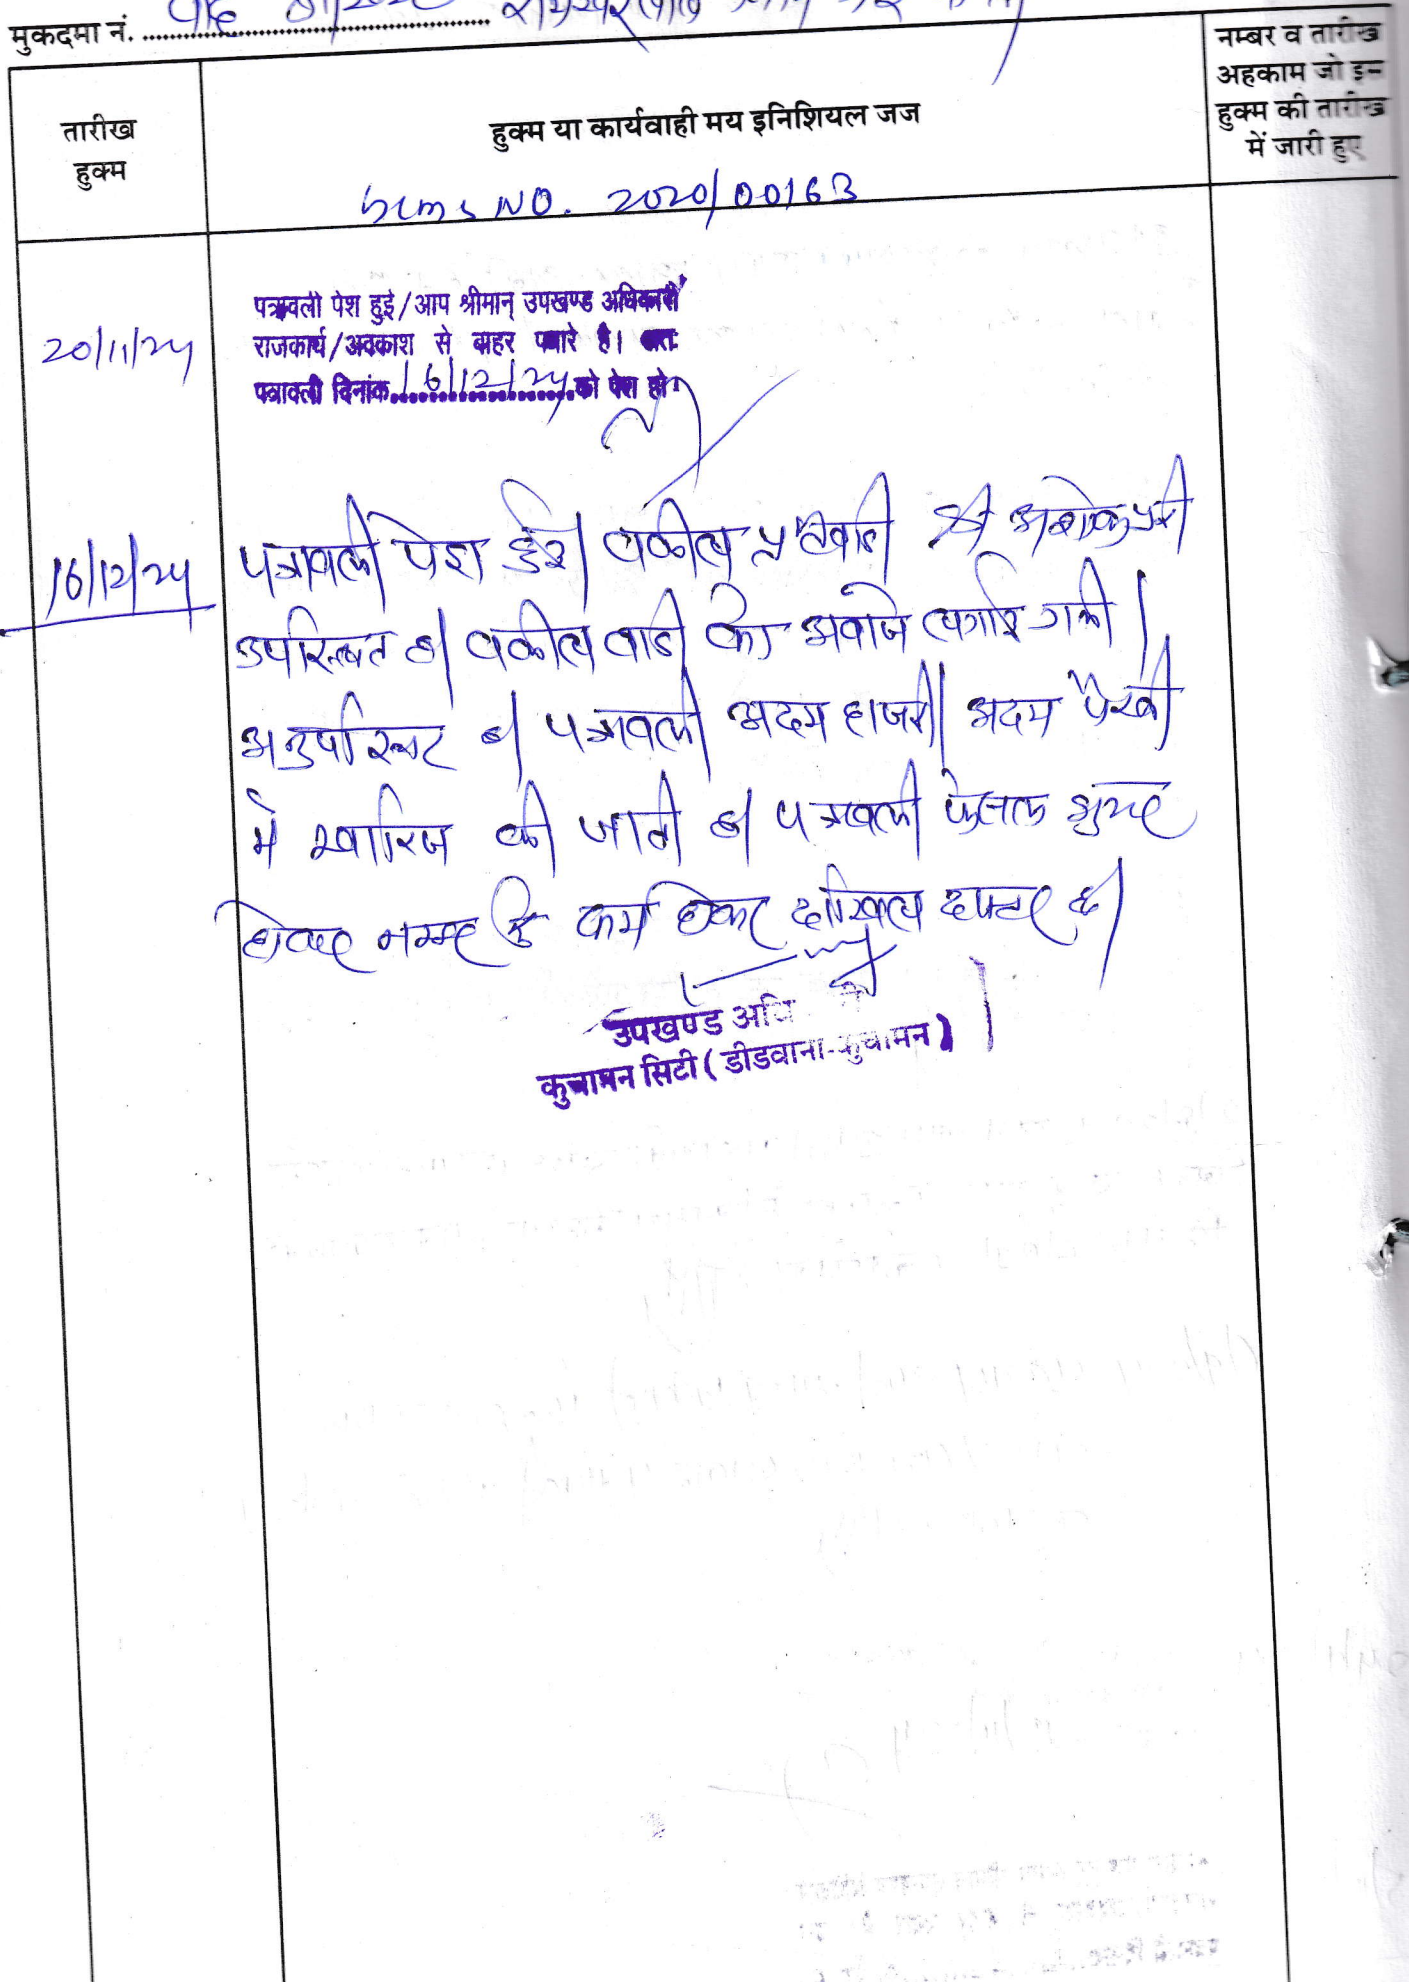 मुकदमा नं.
तारीख
हुक्म
हुक्म या कार्यवाही मय इनिशियल जज
नम्बर व तारीख
अहकाम जो इस
हुक्म की तारीख
में जारी हुए
NO. 2020/00163
20/11/24
पत्रावली पेश हुई/आप श्रीमान् उपखण्ड अधिकारी
राजकार्य/अवकाश से बाहर पधारे है। अतः
पत्रावली दिनांक 16/12/24 को पेश हो
16/12/24
पत्रावली पेश हुई। वकील प्रतिवादी श्री
उपस्थित है। वकील वादी को आवाज लगाई गयी।
अनुपस्थित है। पत्रावली अदम हाजरी अदम पैरवी
में खारिज की जाती है। पत्रावली फैसल शुमार
होकर नम्बर से कम होकर दाखिल दफ्तर हो।
उपखण्ड अधि
कुचामन सिटी (डीडवाना-कुचामन)